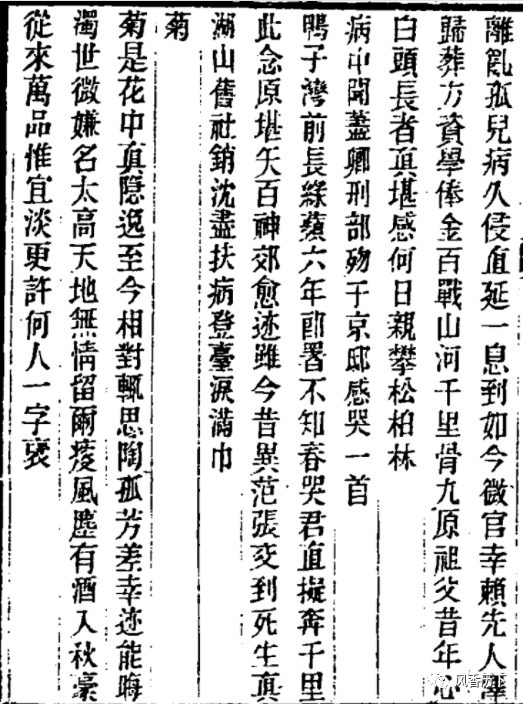 離亂孤兒病久侵直延一息到如今微官幸賴先人澤
歸葬方資學俸金百戰山河千里骨九原祖父昔年心
白頭長者真堪感何日親攀松柏林
病中聞蓋卿刑部歿于京邸感哭一首
鴨子灣前長綠蘋六年郎署不知春哭君直擬奔千里
此念原堪矢百神郊愈迹雖今昔異范張交到死生真
湖山舊社銷沈盡扶病登臺淚滿巾
菊
菊是花中真隱逸至今相對輒思陶孤芳差幸迹能晦
濁世微嫌名太高天地無情留爾瘦風塵有酒入秋豪
從來萬品惟宜淡更許何人一字褒
风香